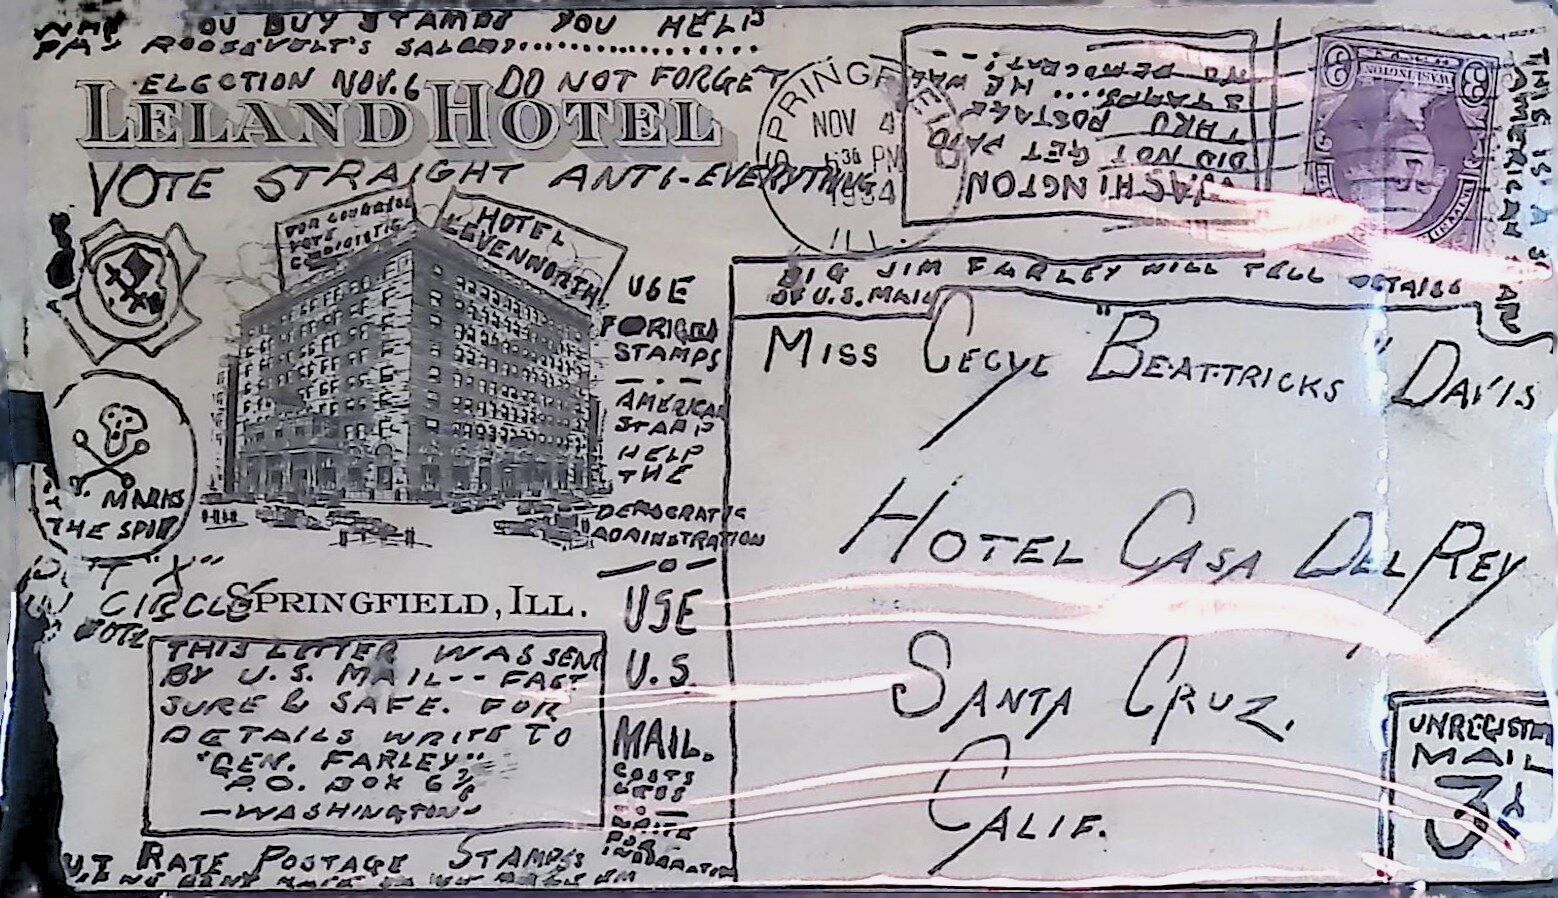 OU BUY STAMPS YOU HELP
PAY ROOSEVOLT'S SALORY..................
ELECTION NOV. 6 DO NOT FORGET
LELAND HOTEL
VOTE STRAIGHT ANTI-EVERYTHING
FOR CONGRESS
VOTE
HOTEL
LEVENWORTH
SPRINGFIELD
NOV 4
30 PM
1934
ILL.
WASHINGTON
DID NOT GET PAID
THRU POSTAGE
STAMPS.... HE WAS
NO DEMOCRAT;--
3 WASHINGTON 3
THIS IS A 3
AMERICAN
BIG JIM FARLEY WILL TELL DETAILS
OF U.S. MAIL
MISS CECYL "BEATTRICKS" DAVIS
HOTEL CASA DEL REY
SANTA CRUZ.
CALIF.
UNREGISTE
MAIL
3¢
USE
FORIGEN
STAMPS
AMERICAN
STAMP
HELP
THE
DEMOCRATIC
ADMINSTRATION
USE
U.S.
MAIL.
COSTS
LESS
WRITE
FOR
INFORMATION
MARKS
THE SPOT
"X"
CIRCLE
VOTE
SPRINGFIELD, ILL.
THIS LETTER WAS SENT
BY U.S. MAIL-- FAST
SURE & SAFE. FOR
DETAILS WRITE TO
"GEN. FARLEY"
P.O. BOX 6⅞
—WASHINGTON—
CUT RATE POSTAGE STAMPS